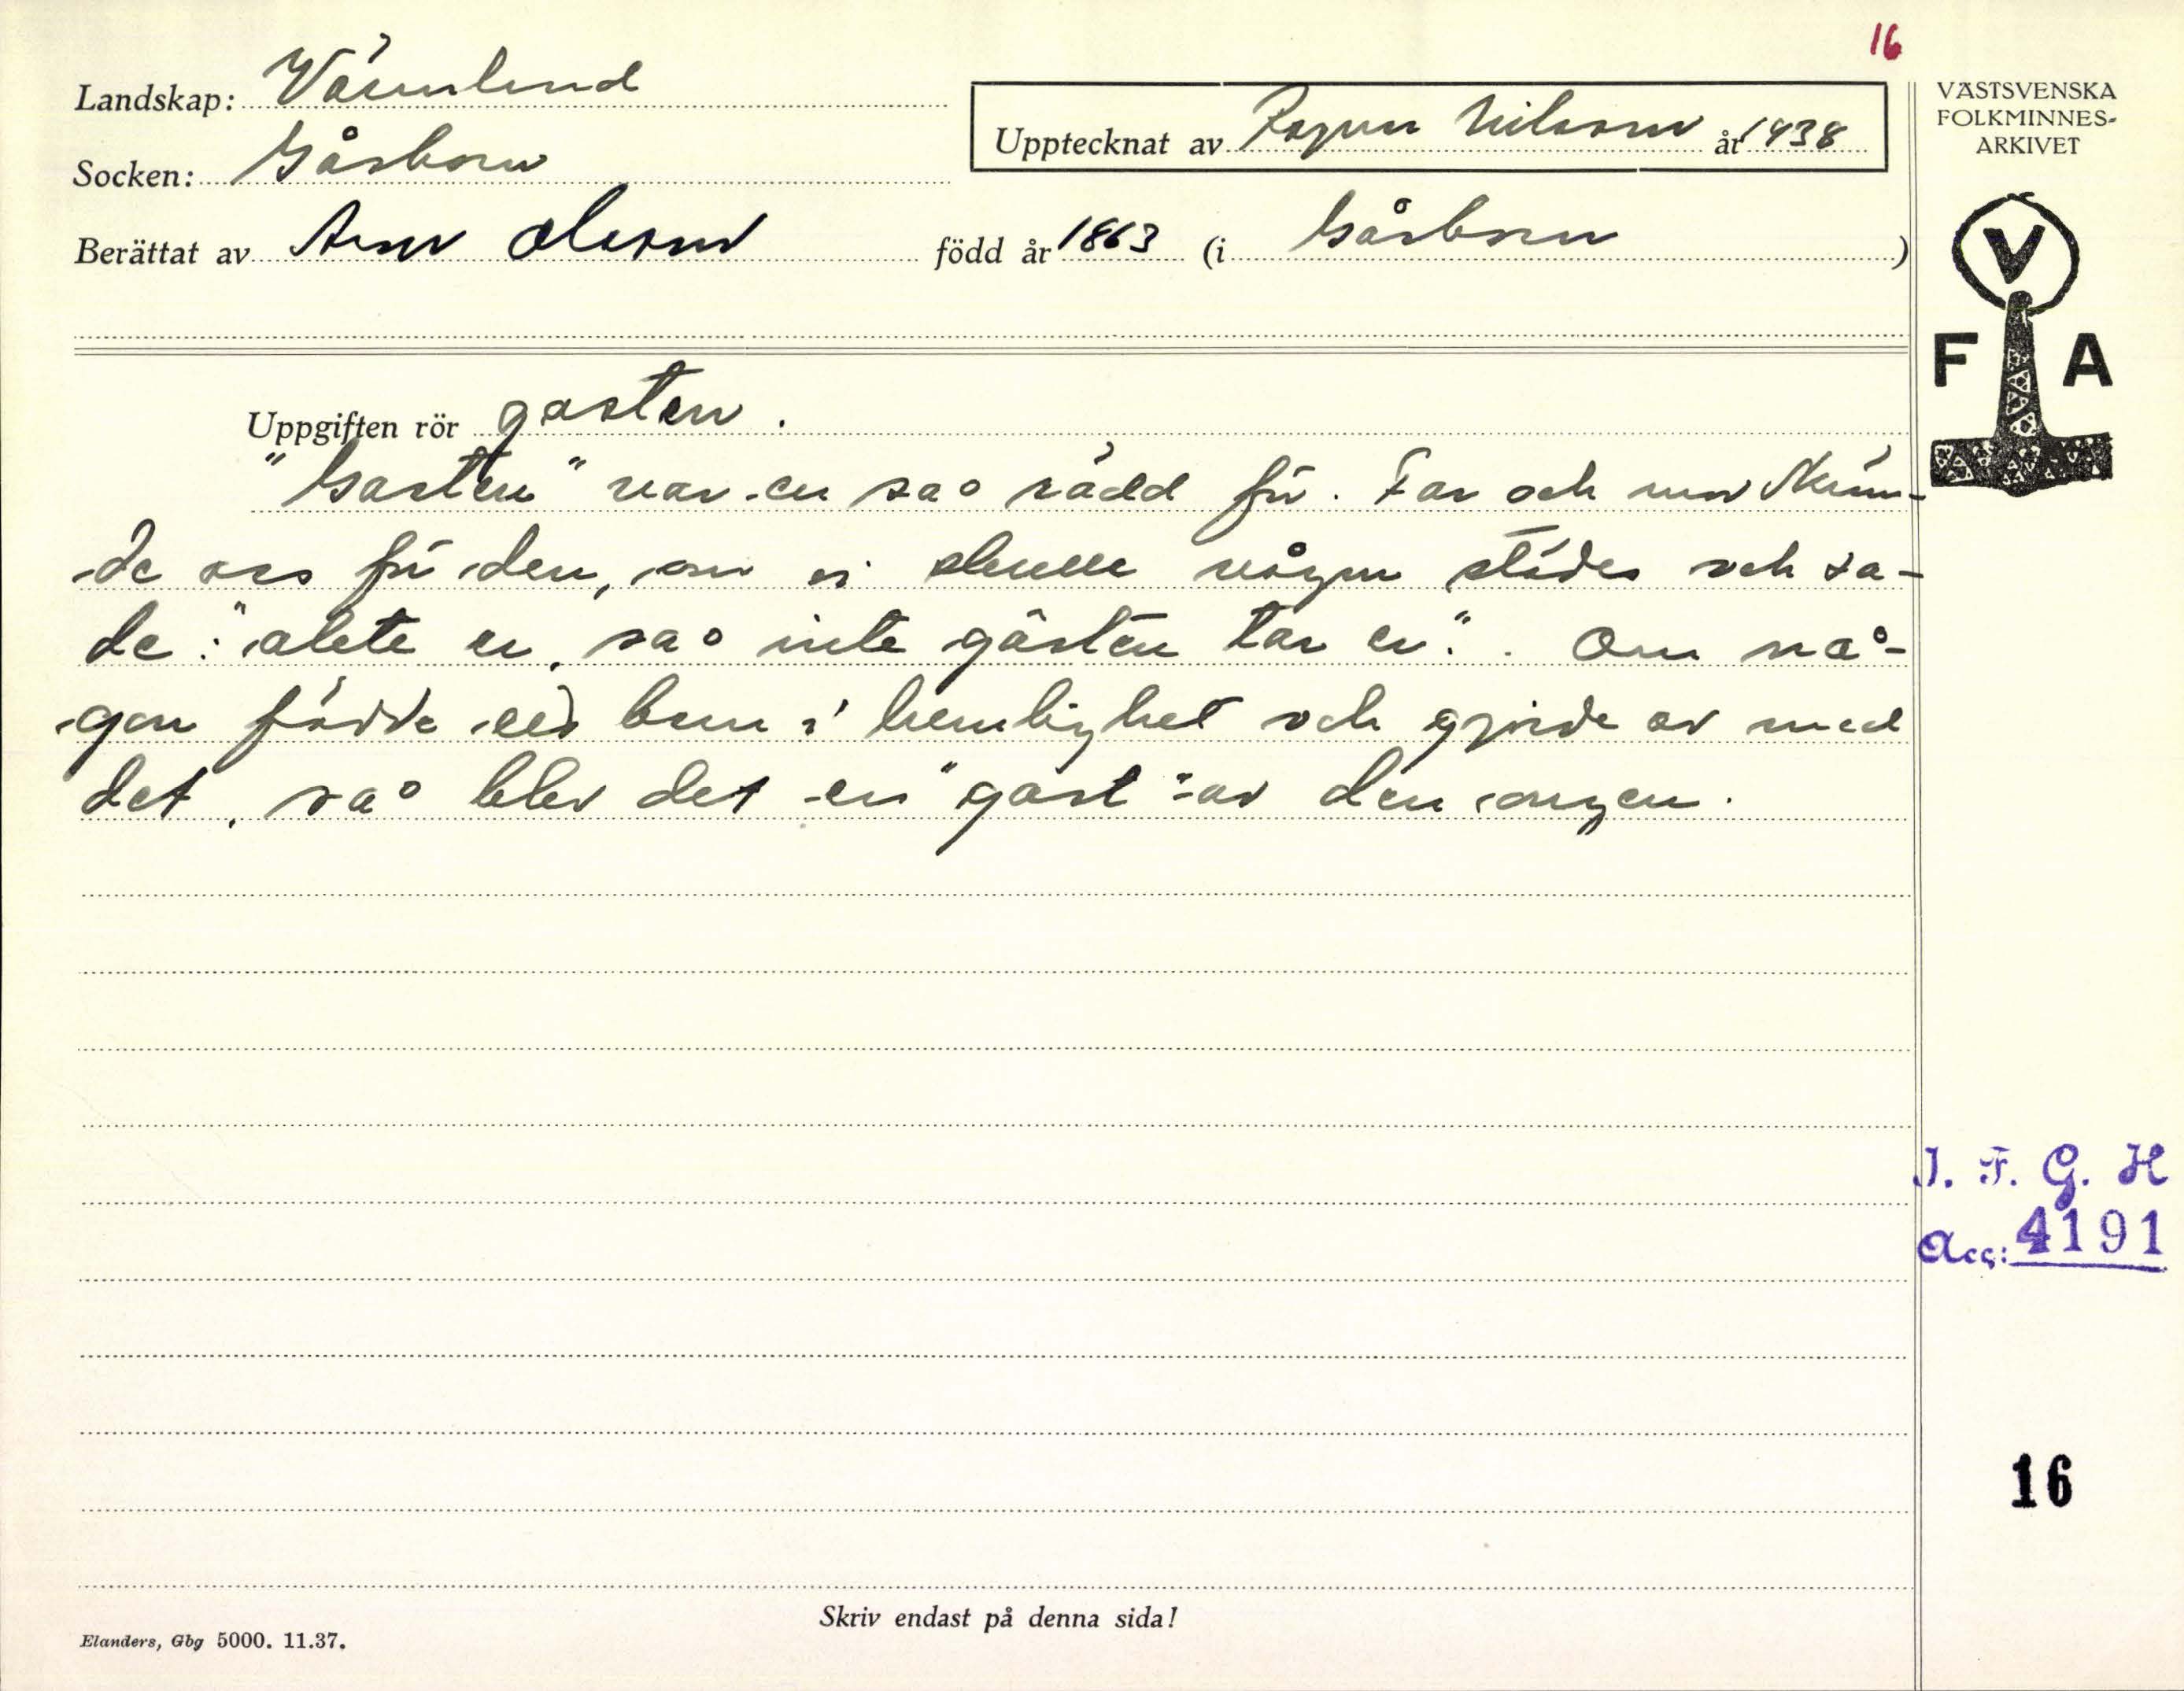 16
Landskap: Värmland
Socken: Gåsborn
Upptecknat av Ragnar Nilsson år 1938
Berättat av Olsson född år 1863 (i Gåsborn)
VÄSTSVENSKA
FOLKMINNES-
ARKIVET
V
F A
Uppgiften rör gasten.
"Gasten" var en så rädd för. Far och mor skräm-
de oss för den, om vi skulle någon städes och sa-
de: "akta er, så inte gasten tar er". Om nå-
gon födde ett barn i hemlighet och gjorde av med
det, så blev det en "gast" av den ongen.
I. F. G. H
Acc: 4191
16
Skriv endast på denna sida!
Elanders, Gbg 5000. 11.37.